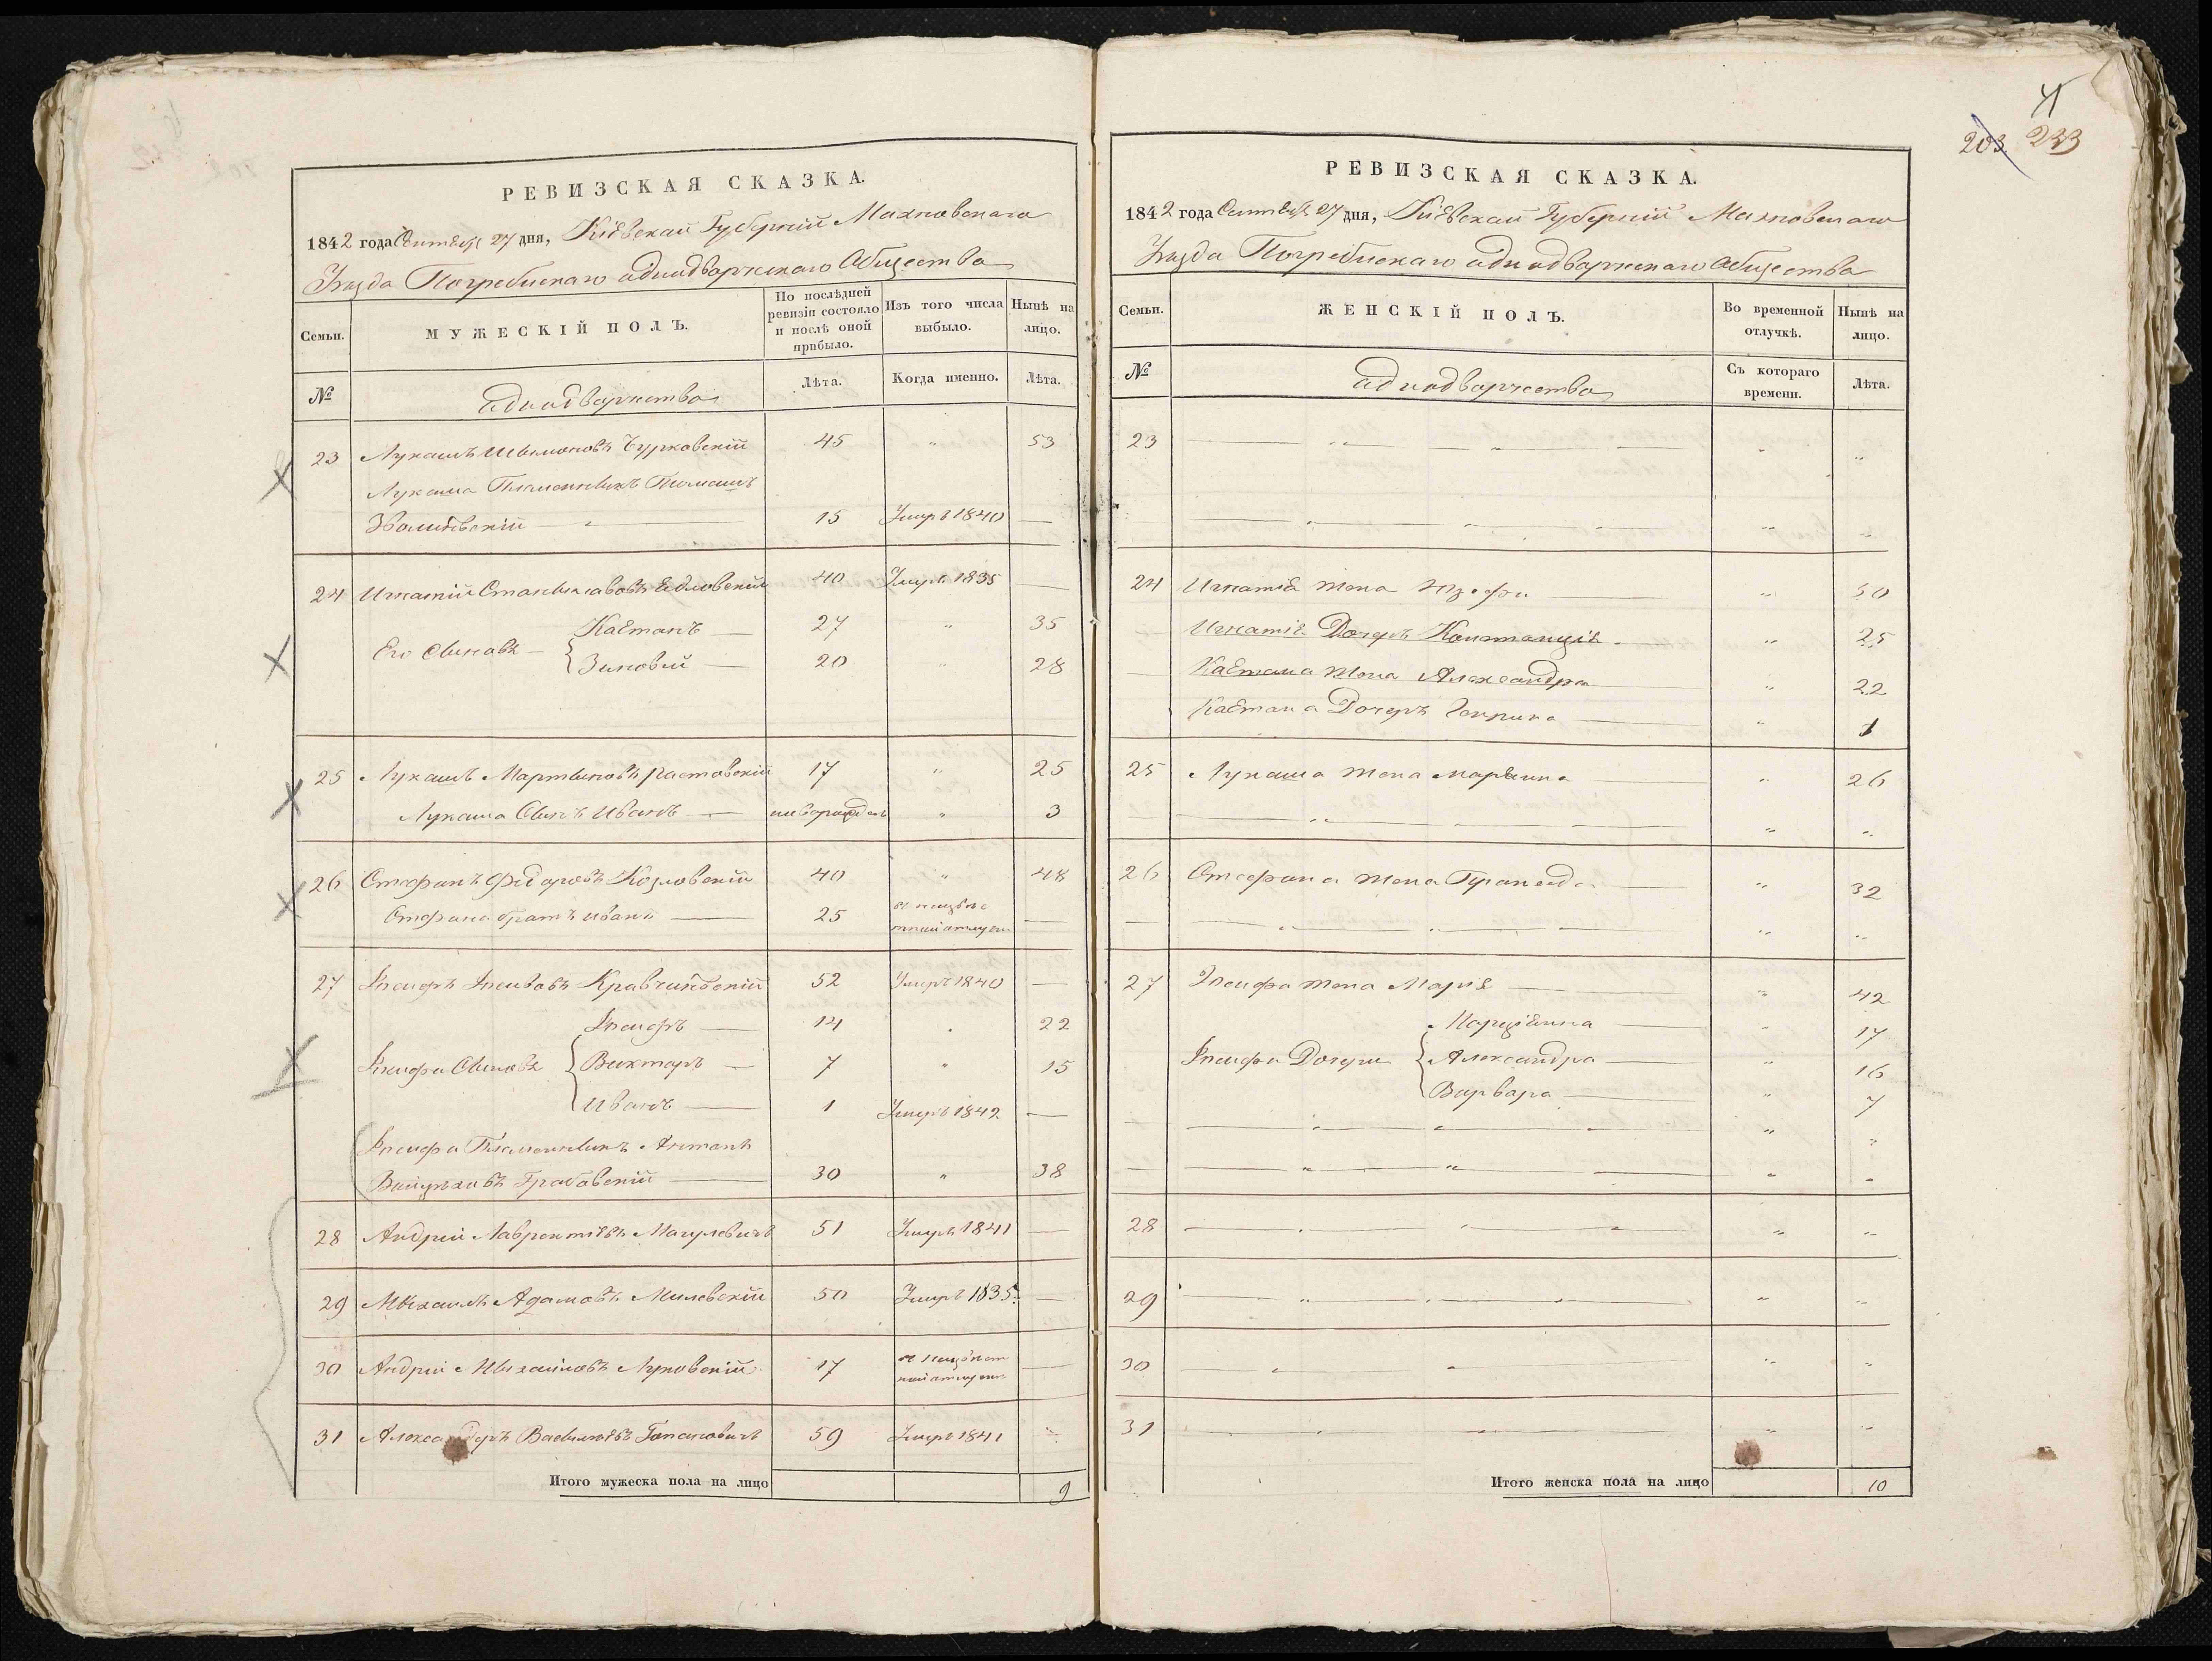 41
203. 233
РЕВИЗСКАЯ СКАЗКА.
1842 года Сентября 27 дня, Кіевской Губерніи Махновскаго
Уезда Погребискаго однодворческаго Общества
Семьи.
МУЖЕСКІЙ ПОЛЪ.
По послѣдней ревизіи состояло и послѣ оной прибыло.
Изъ того числа выбыло.
Нынѣ на лицо.
№
однодворчества
Лѣта.
Когда именно.
Лѣта.
23 Лукашъ Шимоновъ Бурковскій 45 " 53
Лукаша Племенникъ Томашъ
15 Умеръ 1840 —
24 Игнатій Станиславовъ 40 Умеръ 1835 —
Каетанъ — 27 " 35
Его Сыновья —
Зиновій — 20 " 28
25 Лукашъ Мартиновъ Ростовскій 17 " 25
Лукаша Сынъ Иванъ — новорожденъ " 3
26 Стефанъ Федоровъ Козловскій 40 " 48
Стефана братъ Иванъ — 25 в неизвестной отлучке —
27 Іосифъ Іосифовъ Кравчинскій 52 Умеръ 1840 —
Іосифъ — 14 " 22
Іосифа Сыновья Викторъ — 7 " 15
Иванъ — 1 Умеръ 1842 —
Іосифа Племенникъ Антонъ
Войцеховъ Грабовскій — 30 " 38
28 Андрій Лаврентіевъ Мацулевичъ 51 Умеръ 1841 —
29 Михаилъ Адамовъ Милевскій 50 Умеръ 1835. —
30 Андрій Михаиловъ Луковскій 17 в неизвестной отлучке —
31 Александеръ Васильевъ Гопановичъ 59 Умеръ 1841
Итого мужеска пола на лицо 9
РЕВИЗСКАЯ СКАЗКА.
1842 года Сентября 27 дня, Кіевской Губерніи Махновскаго
Уезда Погребискаго однодворческаго Общества
Семьи.
ЖЕНСКІЙ ПОЛЪ.
Во временной отлучкѣ.
Нынѣ на лицо.
№
однодворчества
Съ котораго времени.
Лѣта.
23
24 Игнатія жена Юзефа — " 50
Игнатія Дочерь Констанція — " 25
Каетана жена Александра — " 22
Каетана Дочерь — " 1
25 Лукаша жена Марьяна — " 26
26 Стефана жена — " 32
27 Іосифа жена Марія — " 42
Марціянна — " 17
Іосифа Дочери Александра — " 16
Варвара — " 7
28
29
30
31
Итого женска пола на лицо 10